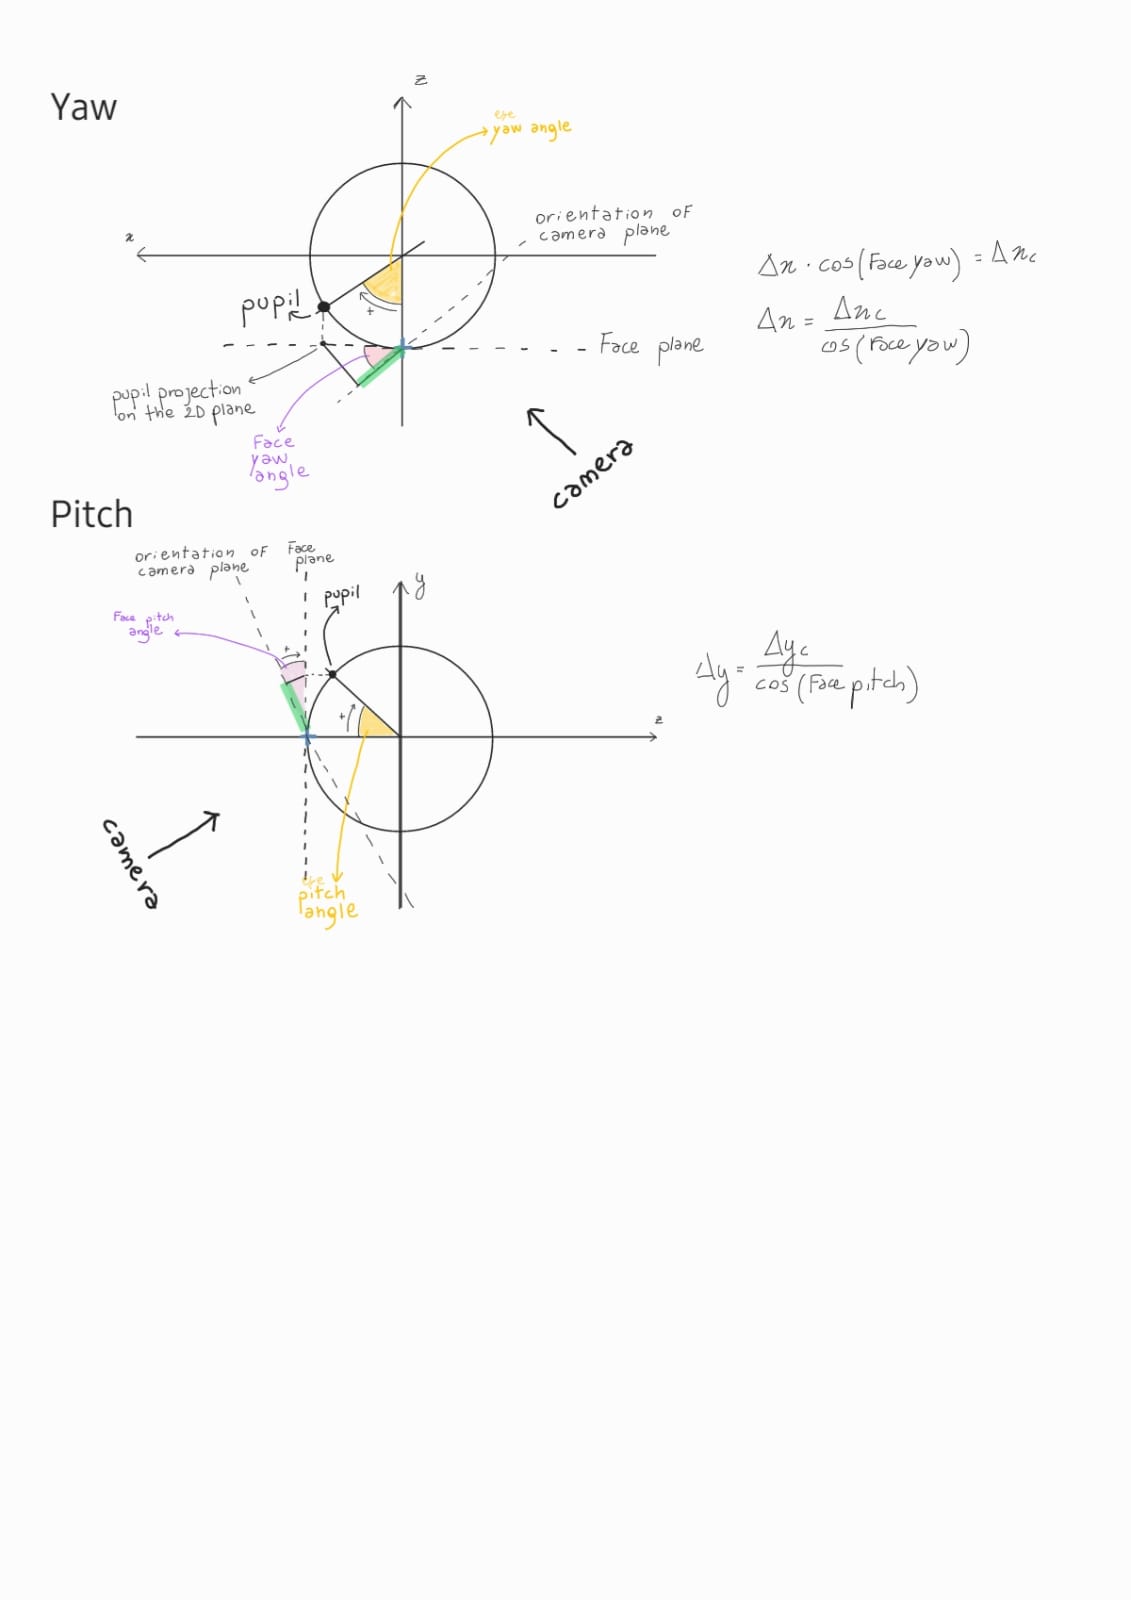 Yaw
z
eye
yaw angle
orientation of
camera plane
x
pupil
+
Face plane
pupil projection
on the 2D plane
Face
yaw
angle
camera
Δx · cos(Face yaw) = Δxc
Δx = Δxc / cos(Face yaw)
Pitch
orientation of
camera plane
Face
plane
pupil
y
Face pitch
angle
+
+
z
camera
eye
pitch
angle
Δy = Δyc / cos(Face pitch)